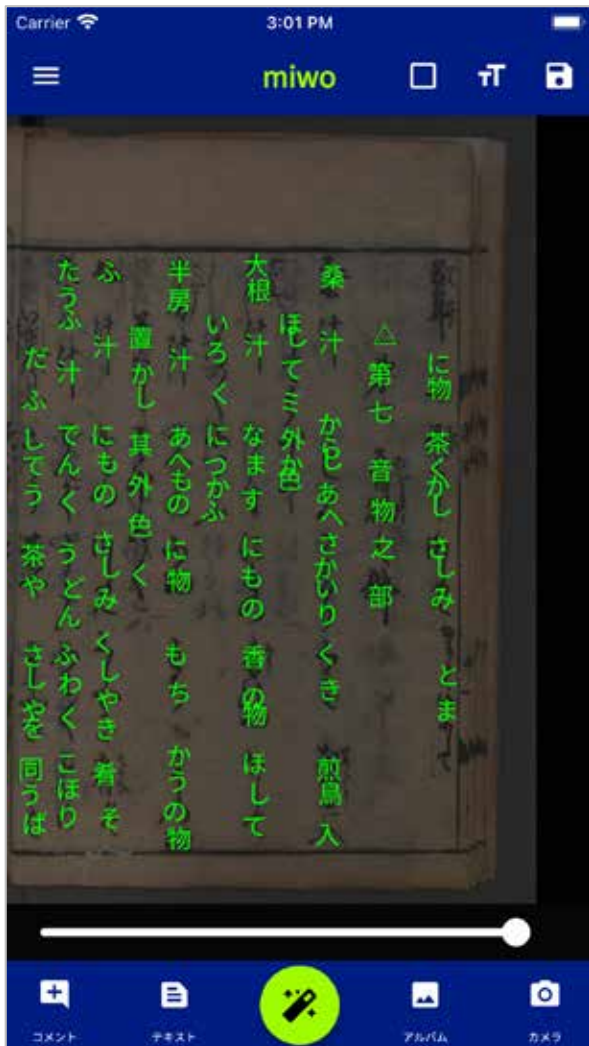 Carrier
3:01 PM
miwo
に物 茶くかし さしみ とま
⚠第七 音物之部
桑 汁 からしあへ さかいり くき 煎鳥 入
ほしてミ外か色
大根 汁 なます にもの 香の物 ほして
いろく につかふ
半房 汁 あへもの に物 もち かうの物
置かし其外色く
ふ 汁 にもの さしみ くしやき 肴 そ
たうふ 汁 でんく うどん ふわく こほり
だふしてう 茶や さしやを 同うば
コメント
テキスト
アルバム
カメラ